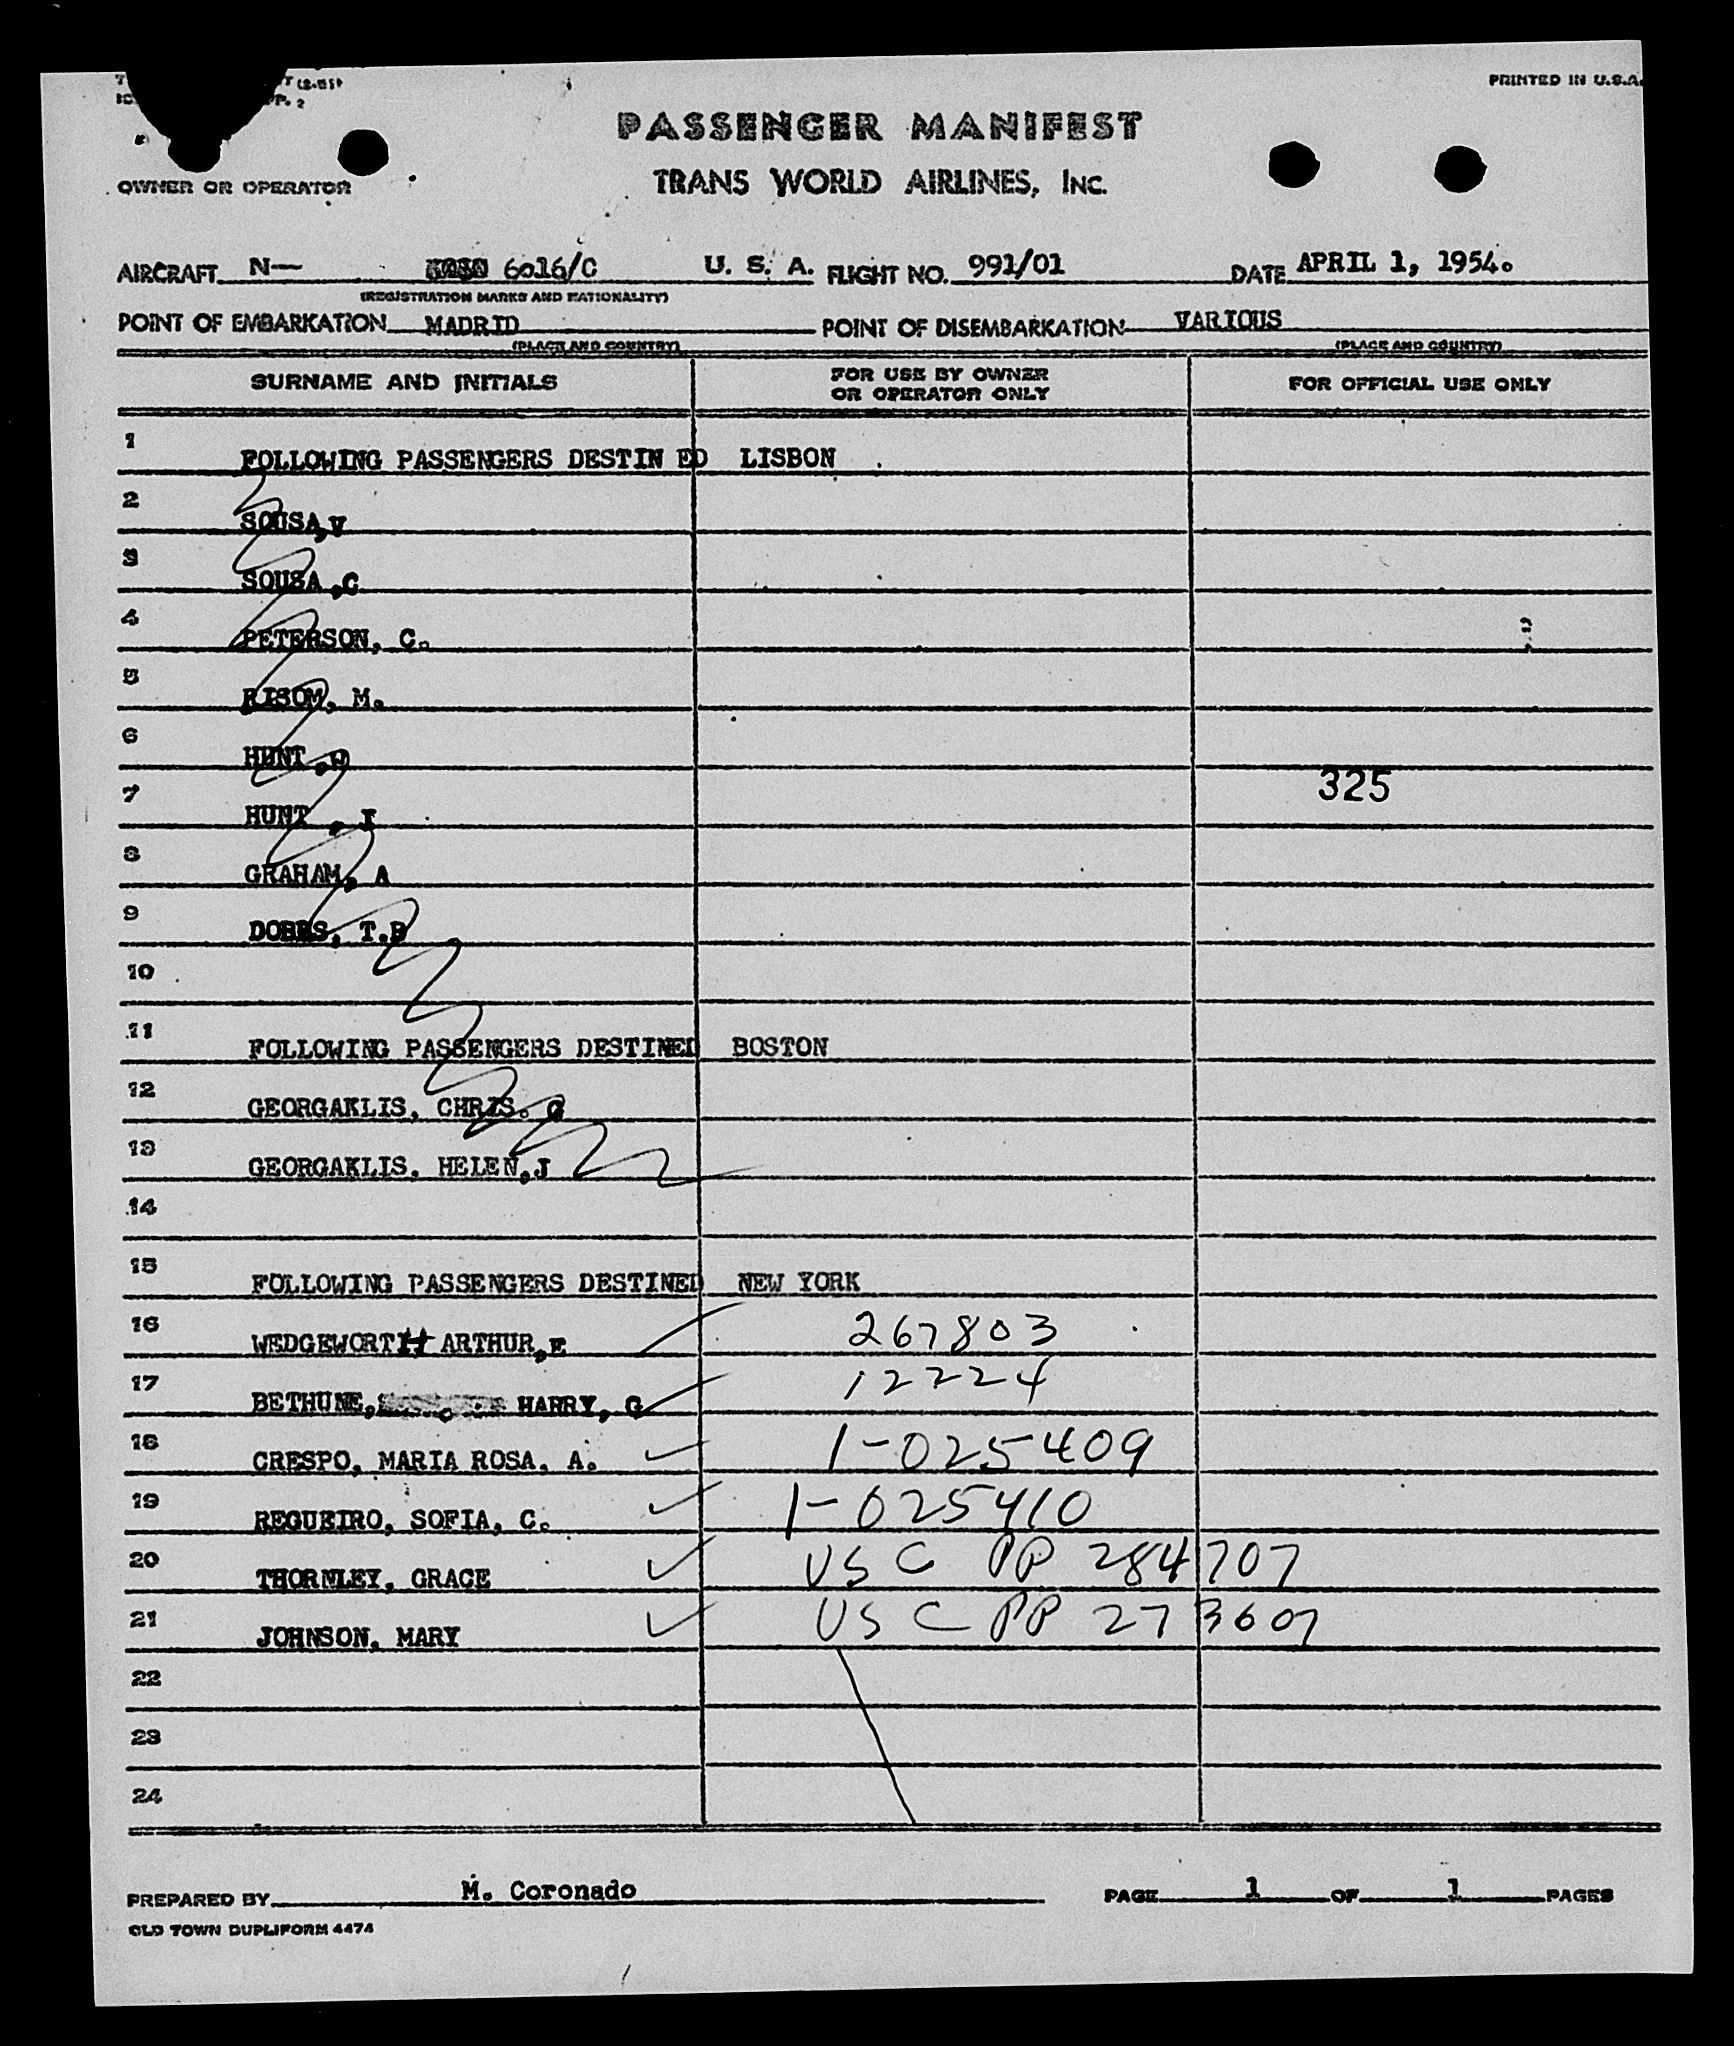 PRINTED IN U.S.A.
PASSENGER MANIFEST
OWNER OR OPERATOR
TRANS WORLD AIRLINES, INC.
AIRCRAFT N— 6016/C U. S. A. FLIGHT NO. 991/01 DATE APRIL 1, 1954.
(REGISTRATION MARKS AND NATIONALITY)
POINT OF EMBARKATION MADRID POINT OF DISEMBARKATION VARIOUS
(PLACE AND COUNTRY) (PLACE AND COUNTRY)
SURNAME AND INITIALS FOR USE BY OWNER OR OPERATOR ONLY FOR OFFICIAL USE ONLY
1 FOLLOWING PASSENGERS DESTIN ED LISBON
2 SOUSA,V
3 SOUSA ,C
4 PETERSON, C.
5 RISOM, M.
6 HUNT ,
7 HUNT , I 325
8 GRAHAM, A
9 DOBBS, T.B
10
11 FOLLOWING PASSENGERS DESTINED BOSTON
12 GEORGAKLIS, CHRIS. G
13 GEORGAKLIS, HELEN,J
14
15 FOLLOWING PASSENGERS DESTINED NEW YORK
16 WEDGEWORTH ARTHUR,E 267803
17 BETHUNE, HARRY, G 12224
18 CRESPO, MARIA ROSA. A. 1-025409
19 REGUEIRO, SOFIA, C. 1-025410
20 THORNLEY, GRACE USC PP 284707
21 JOHNSON, MARY USC PP 273607
22
23
24
PREPARED BY M. Coronado PAGE 1 OF 1 PAGES
OLD TOWN DUPLIFORM 4474